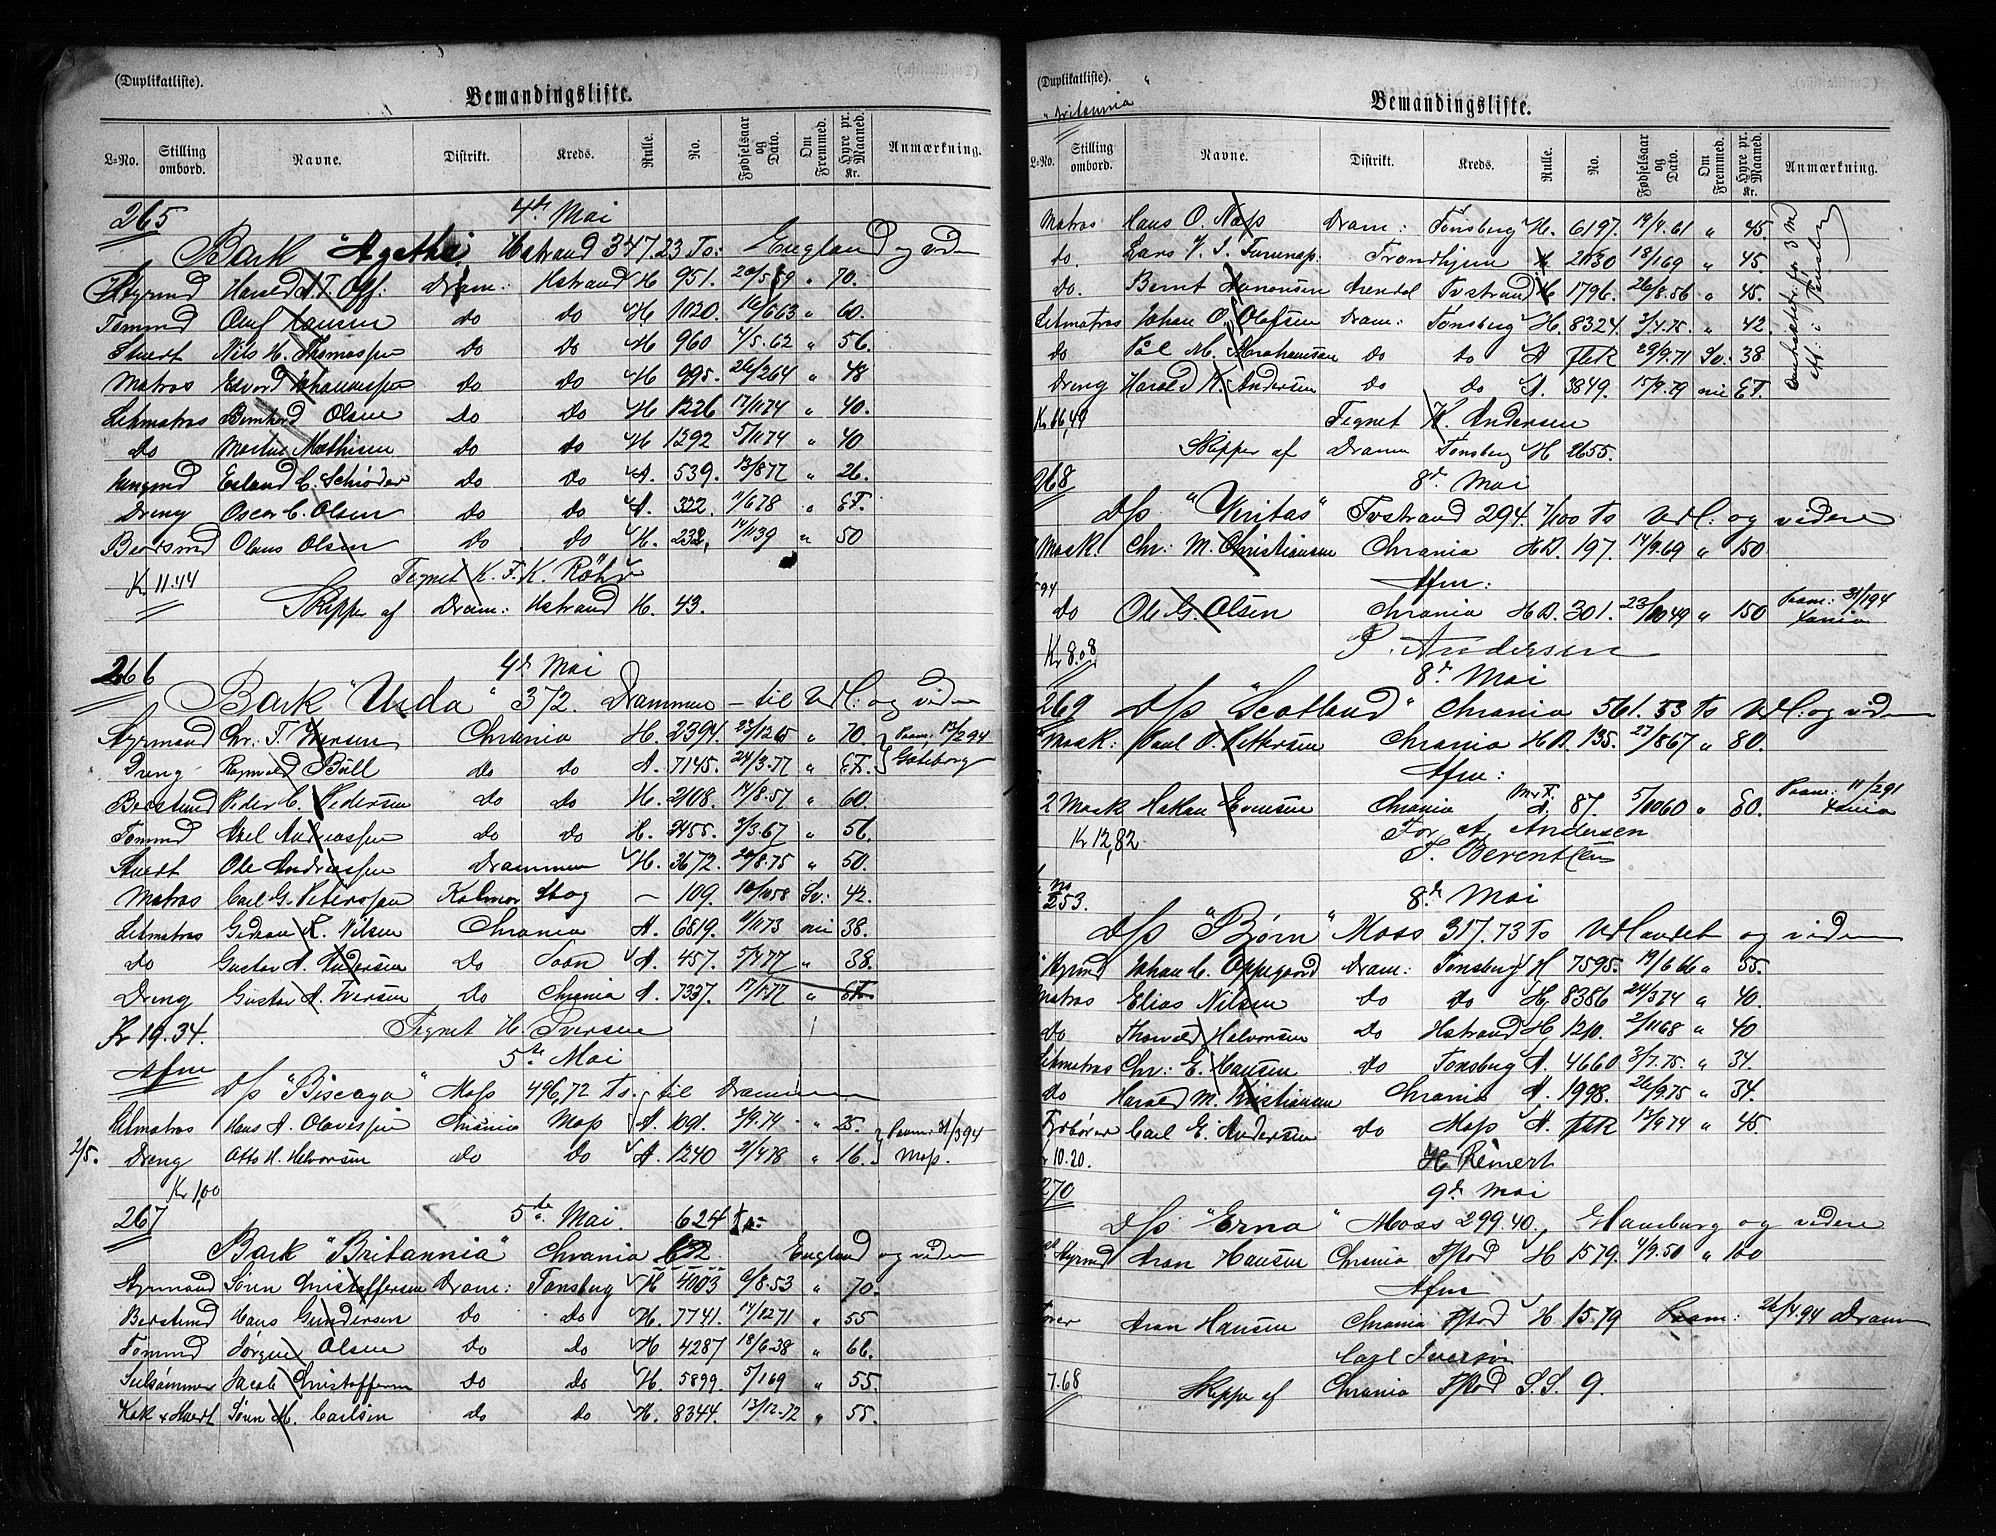 (Duplikatliste).
Bemandingsliste.
L-No. Stilling ombord. Navne. Distrikt. Kreds. Rulle. No. Fødselsaar og Dato. Om Fremmed. Hyre pr. Maaned. Kr. Anmærkning.
265 4de Mai
Bark "Agathe" Hstrand 347.23 To: England og vid
Styrmd Harald A. T. Off. Dram: Hstrand H 951. 20/5 59 " 70.
Tømmd Oluf Hansen do do H 1020. 16/6 63 " 60.
Stuert Nils H. Thomassen do do H 960 4/5.62 " 56.
Matros Edvard Johannessen do do H 995. 26/2 64 " 48
Letmatros Bernhard Olsen do do H 1226 17/11 74 " 40.
do Martin Mathisen do do H 1292 5/11 74 " 40
Jungmd Erland C. Schrøder do do A. 539. 13/8 77 " 26.
Dreng Oscar C. Olsen do do A. 322. 11/6 78 " ET.
Bestmd Olaus Olsen do do H. 232. 14/11 39 " 50
Kr 11.44 Tegnet K. F. K. Röhr
Skipper af Dram: Hstrand H. 43.
266 4de Mai
Bark "Urda" 372. Drammen - til Udl: og viden
Styrmand Chr. T. Iversen Chrania H. 2394 23/12 65 " 70 Paam: 13/2 94
Dreng Ragnvald Bull do do A. 7145. 24/3.77 " ET. Göteborg
Bestmd Peder C. Pedersen do do H. 2108. 14/8.57 " 60.
Tømmd Axel Andreassen do do H. 2455. 3/3.67 " 56.
Stuert Ole Andreassen Drammen H. 3672. 20/8.75 " 50.
Matros Carl G. Peterssen Kalmar Skog - 109. 10/10 58 Sv: 42.
Letmatros Gideon R. Nilsen Chrania A. 6819. 4/11 73 nei 38.
Do Gustav A. Andersen Do Soon A. 457. 5/4 77 " 38.
Dreng Gustav A. Iversen Do Chrania A. 7337. 17/1 77 " ET.
Kr 19.34. Tegnet H. Iversen
Afm 5te Mai
D/s "Biscaya" Moss 496,72 Ts. til Drammen
Letmatros Hans A. Olavessen Chrania Moss A. 1091. 3/9.74 " 25. Paam: 31/3 94
2/5. Dreng Otto H. Halvorsen do do A. 1240 2/4 78 " 16. Moss.
Kr 1,00
267 5te Mai. 624 To.
Bark "Britannia" Chrania 672. England og viden
Styrmand Søren Christoffersen Dram: Tønsberg H 4003 9/8.53 " 70.
Bestmd Hans Gundersen do do H. 7741. 14/12 71 " 55
Tømmd Jørgen Olsen do do H 4287 18/6.38 " 66.
Seilsømmer Jacob Christoffersen do do H. 5899. 5/1 69 " 55.
Kok & Stuert Søren M. Carlsen do do H. 8344. 13/12.72 " 55.
(Duplikatliste).
"Britannia Bemandingsliste.
L-No. Stilling ombord. Navne. Distrikt. Kreds. Rulle. No. Fødselsaar og Dato. Om Fremmed. Hyre pr. Maaned. Kr. Anmærkning.
Matros Hans O. Næss Dram: Tønsberg H. 6197. 19/4.61 " 45.
do Lars J. S. Trondhjem H 2130 18/1 69 " 45.
Do. Bernt Aanonsen Arendal Tvstrand H 1796. 26/8.56 " 45.
Letmatros Johan O. Olafsen Dram: Tønsberg H. 8324. 3/4.75. " 42.
do Pål M. Abrahamsen do do A 29/9.71 Sv: 38
Dreng Harald K. Andersen do do A. 3849. 15/9.79 nei ET.
Kr 66,49 Tegnet K. Andersen
Skipper af Dram Tønsberg H 2655.
268 8de Mai
D/s "Veritas" Tvstrand 294. 7/100 Ts Udl: og videre
Mask. Chr: M. Christiansen Chrania H.D. 197. 14/9.69 " 150
Afm:
do Ole G. Olsen Chrania H.D. 301. 23/10 49 " 150 Paam: 31/1 94
Kr 8.08 P. Andersen
8de Mai
269 D/s "Scotland" Chrania 561.53 Ts Udl: og viden
Mask: Paul O. Pettersen Chrania H.D. 135. 27/8 67 " 80.
Afm:
2 Mask Hakan Evensen Chrania A. 87. 5/10 60 " 80. Paam: 11/2 91
Kr 12,82. For A. Andersen
T. Berentsen
no 253. 8de Mai
D/s "Bjørn" Moss 317.73 Ts Udlandet og viden
Styrmd Johan C. Oppegaard Dram: Tønsberg H 7595. 19/6 66 " 55.
Matros Elias Nilsen do do H, 8386 24/3 74 " 40.
do Thorvald Halvorsen do Hstrand H, 1210. 2/11 68 " 40
Letmatros Chr: E. Hansen do Tønsberg A. 4660 3/7.75. " 34.
do Harald M. Kristiansen Chrania A. 1998. 26/9.75 " 34.
Fyrbøter Carl E. Andersen do Moss A. 13/9 74 " 45.
Kr 10.20. H. Reinert
270 9de Mai
D/s "Erna" Moss 299.40. Hamburg og videre
Styrmd Aron Hansen Chrania Fstad H 1579. 4/9.50 " 100
Afm
Aron Hansen Chrania Fstad H 1579 Paam: 26/4.94 Dram
Carl Iversen
7.68 Skipper af Chrania Fstad S.S. 9.